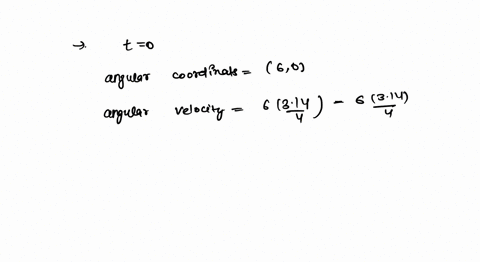 →. t=0
angular coordinats = (6,0)
angular velocity = 6 (3.14/4) - 6 (3.14)/4